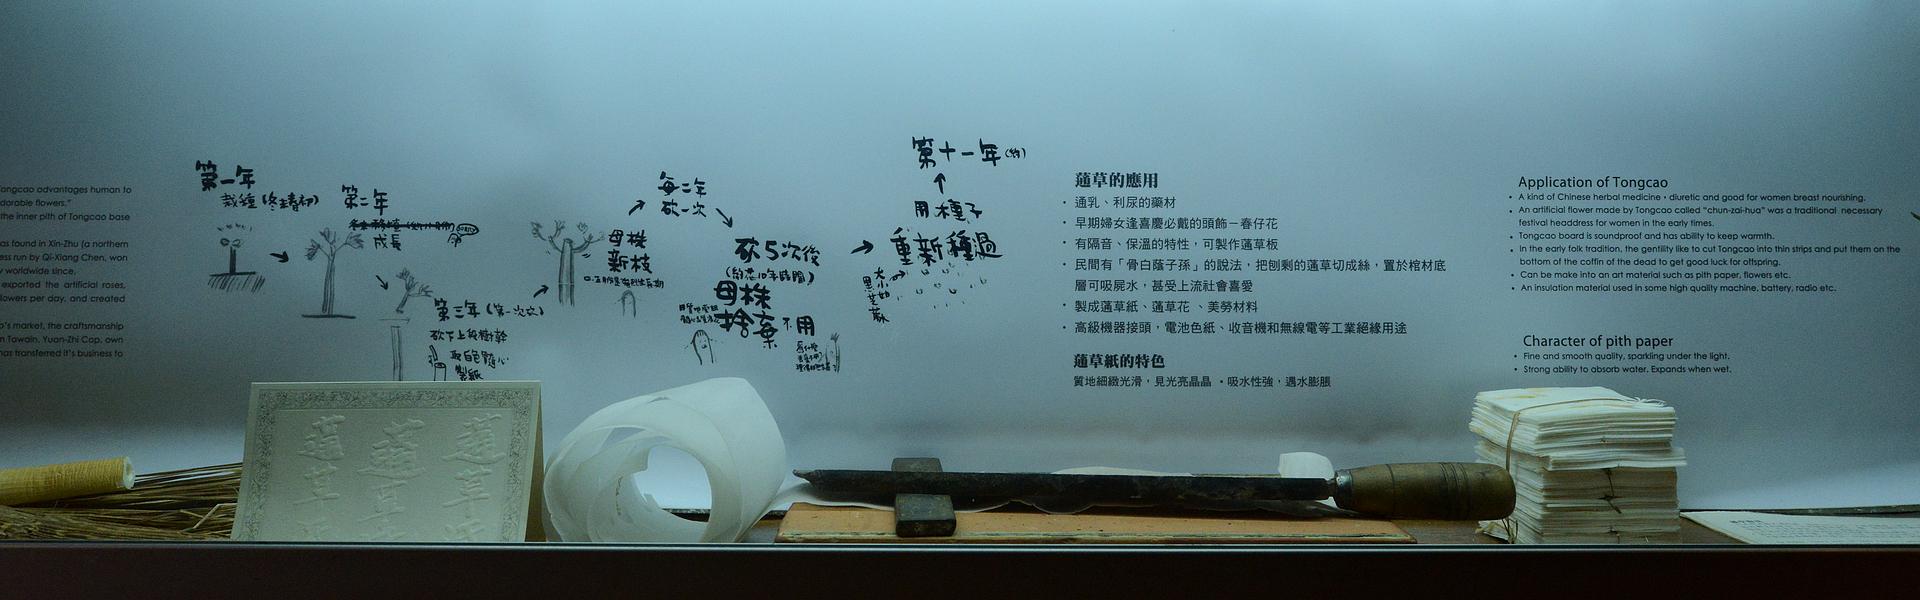 ongcao advantages human to
dorable flowers."
the inner pith of Tongcao base
as found in Xin-Zhu (a northern
ess run by Qi-Xiang Chen, won
worldwide since.
exported the artificial roses,
lowers per day, and created
o's market, the craftsmanship
n Tawain, Yuan-Zhi Cap, own
has transferred it's business to
第一年
栽種(冬末春初)
第二年
成長
第三年(第一次砍)
砍下上段樹幹
取白色髓心
製紙
母株
新枝
每二年
砍一次
砍5次後
(約莊10年時間)
母株
捨棄不用
重新種過
用種子
第十一年(約)
大小如
黑芝麻
蓪草的應用
・通乳、利尿的藥材
・早期婦女逢喜慶必戴的頭飾－春仔花
・有隔音、保溫的特性，可製作蓪草板
・民間有「骨白蔭子孫」的說法，把刨剩的蓪草切成絲，置於棺材底
層可吸屍水，甚受上流社會喜愛
・製成蓪草紙、蓪草花 、美勞材料
・高級機器接頭，電池色紙、收音機和無線電等工業絕緣用途
蓪草紙的特色
質地細緻光滑，見光亮晶晶 ・吸水性強，遇水膨脹
Application of Tongcao
• A kind of Chinese herbal medicine，diuretic and good for women breast nourishing.
• An artificial flower made by Tongcao called "chun-zai-hua" was a traditional necessary
festival headdress for women in the early times.
• Tongcao board is soundproof and has ability to keep warmth.
• In the early folk tradition, the gentility like to cut Tongcao into thin strips and put them on the
bottom of the coffin of the dead to get good luck for offspring.
• Can be make into an art material such as pith paper, flowers etc.
• An insulation material used in some high quality machine, battery, radio etc.
Character of pith paper
• Fine and smooth quality, sparkling under the light.
• Strong ability to absorb water. Expands when wet.
蓪草
蓪草
蓪草